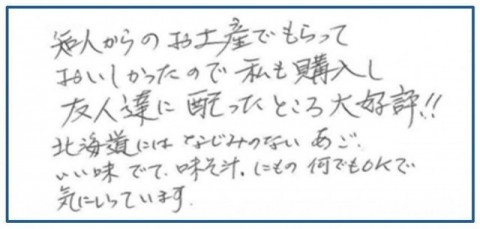 知人からのお土産でもらって
おいしかったので私も購入し
友人達に配ったところ大好評!!
北海道にはなじみのないあご.
いい味でて.味そ汁.にもの何でもOKで
気にいっています.